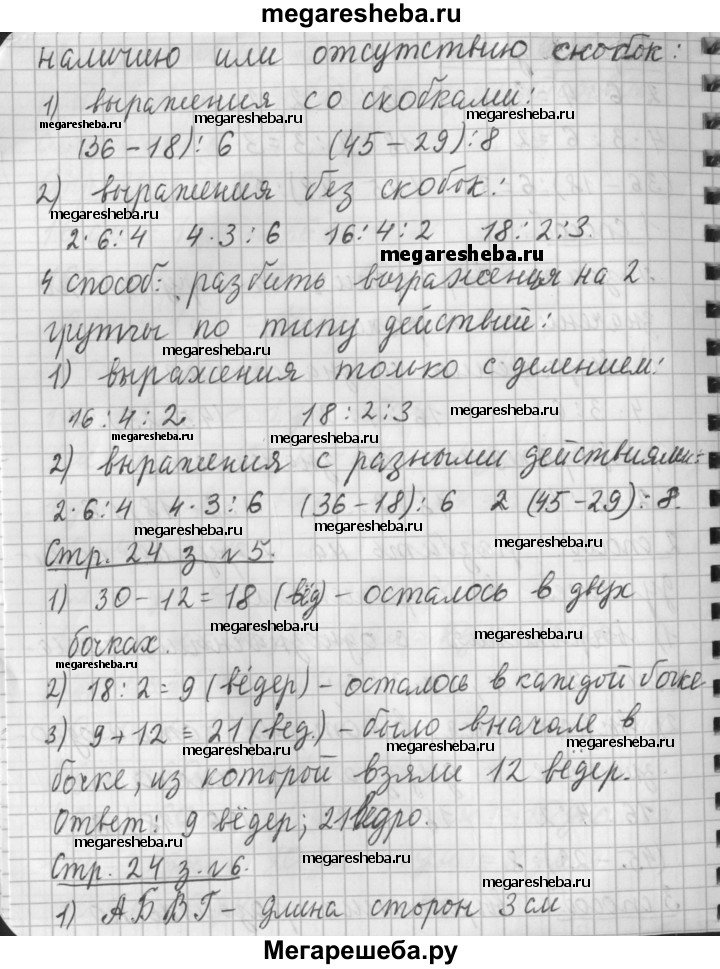 megaresheba.ru
наличию или отсутствию скобок:
1) выражения со скобками:
megaresheba.ru megaresheba.ru megaresheba.ru
(36 - 18) : 6 (45 - 29) : 8
2) выражения без скобок:
megaresheba.ru megaresheba.ru
2·6:4 4·3:6 16:4:2 18:2:3.
megaresheba.ru
4 способ: разбить выражения на 2
группы по типу действий:
megaresheba.ru
1) выражения только с делением:
16:4:2 18:2:3 megaresheba.ru
megaresheba.ru megaresheba.ru
2) выражения с разными действиями:
2·6:4 4·3:6 (36-18): 6 2 (45-29):8.
megaresheba.ru megaresheba.ru megaresheba.ru
Стр. 24 з №5.
1) 30 - 12 = 18 (вёд) - осталось в двух
megaresheba.ru megaresheba.ru
бочках.
megaresheba.ru
2) 18 : 2 = 9 (вёдер) - осталось в каждой бочке
3) 9 + 12 = 21 (вед.) - было вначале в
megaresheba.ru megaresheba.ru megaresheba.ru
бочке, из которой взяли 12 вёдер.
Ответ: 9 вёдер; 21 ведро.
megaresheba.ru megaresheba.ru
Стр. 24 з. №6.
megaresheba.ru
1) АБВГ - длина сторон 3 см
megaresheba.ru megaresheba.ru
Мегарешеба.ру